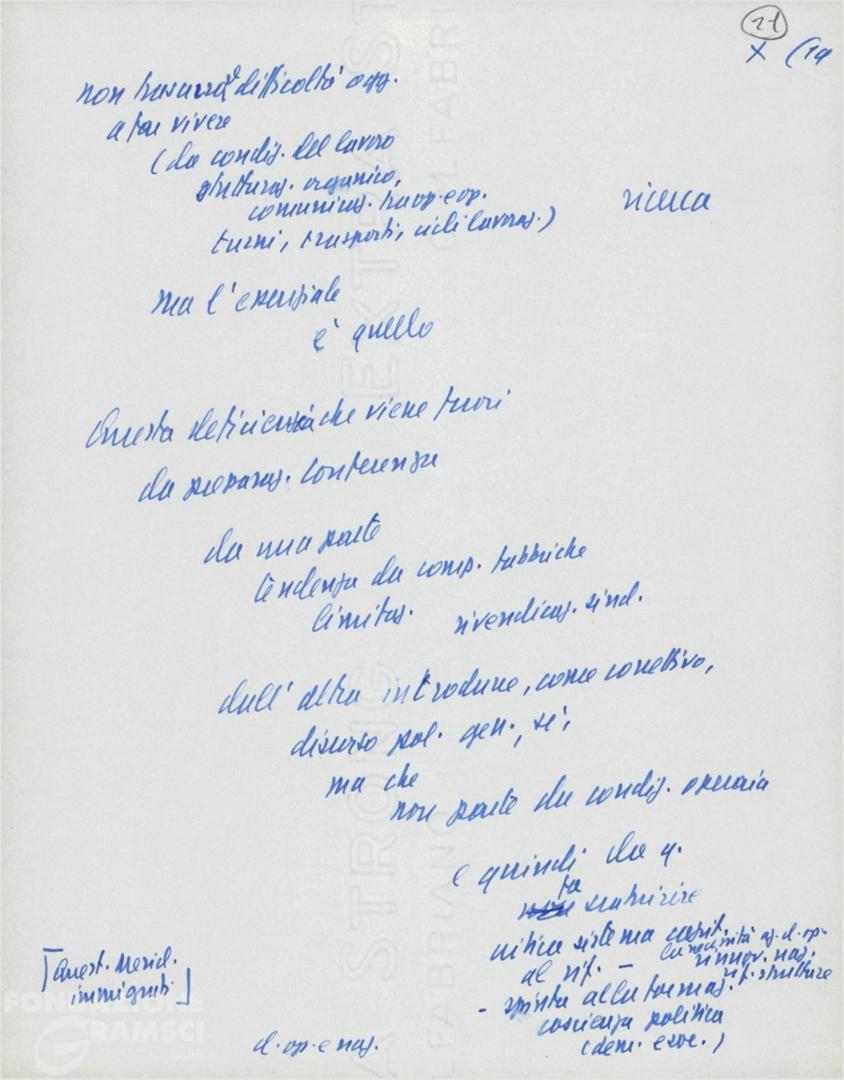 21
X (19
non trascurare difficoltà ogg.
a far vivere
(da condiz. del lavoro
strutturaz. organico,
comunicaz. tra op. e op.
turni, trasporti, cicli lavoraz.)
ricerca
ma l'essenziale
è quello
Questa deficienza che viene fuori
da preparaz. Conferenza
da una parte
tendenza da comp. fabbriche
limitaz. rivendicaz. sind.
dall'altra introdurre, come correttivo,
discorso pol. gen., sì,
ma che
non parte da condiz. operaia
e quindi da q.
fa scaturire
critica sistema capit.
al rif. - la necessità az. d. op.
rinnov. naz.
rif. strutture
- spinta alla formaz.
coscienza politica
(dem. e soc.)
[Quest. Merid.
immigrati]
cl. op. e naz.
FONDAZIONE
GRAMSCI
EXTRA STRONG
FABRIANO